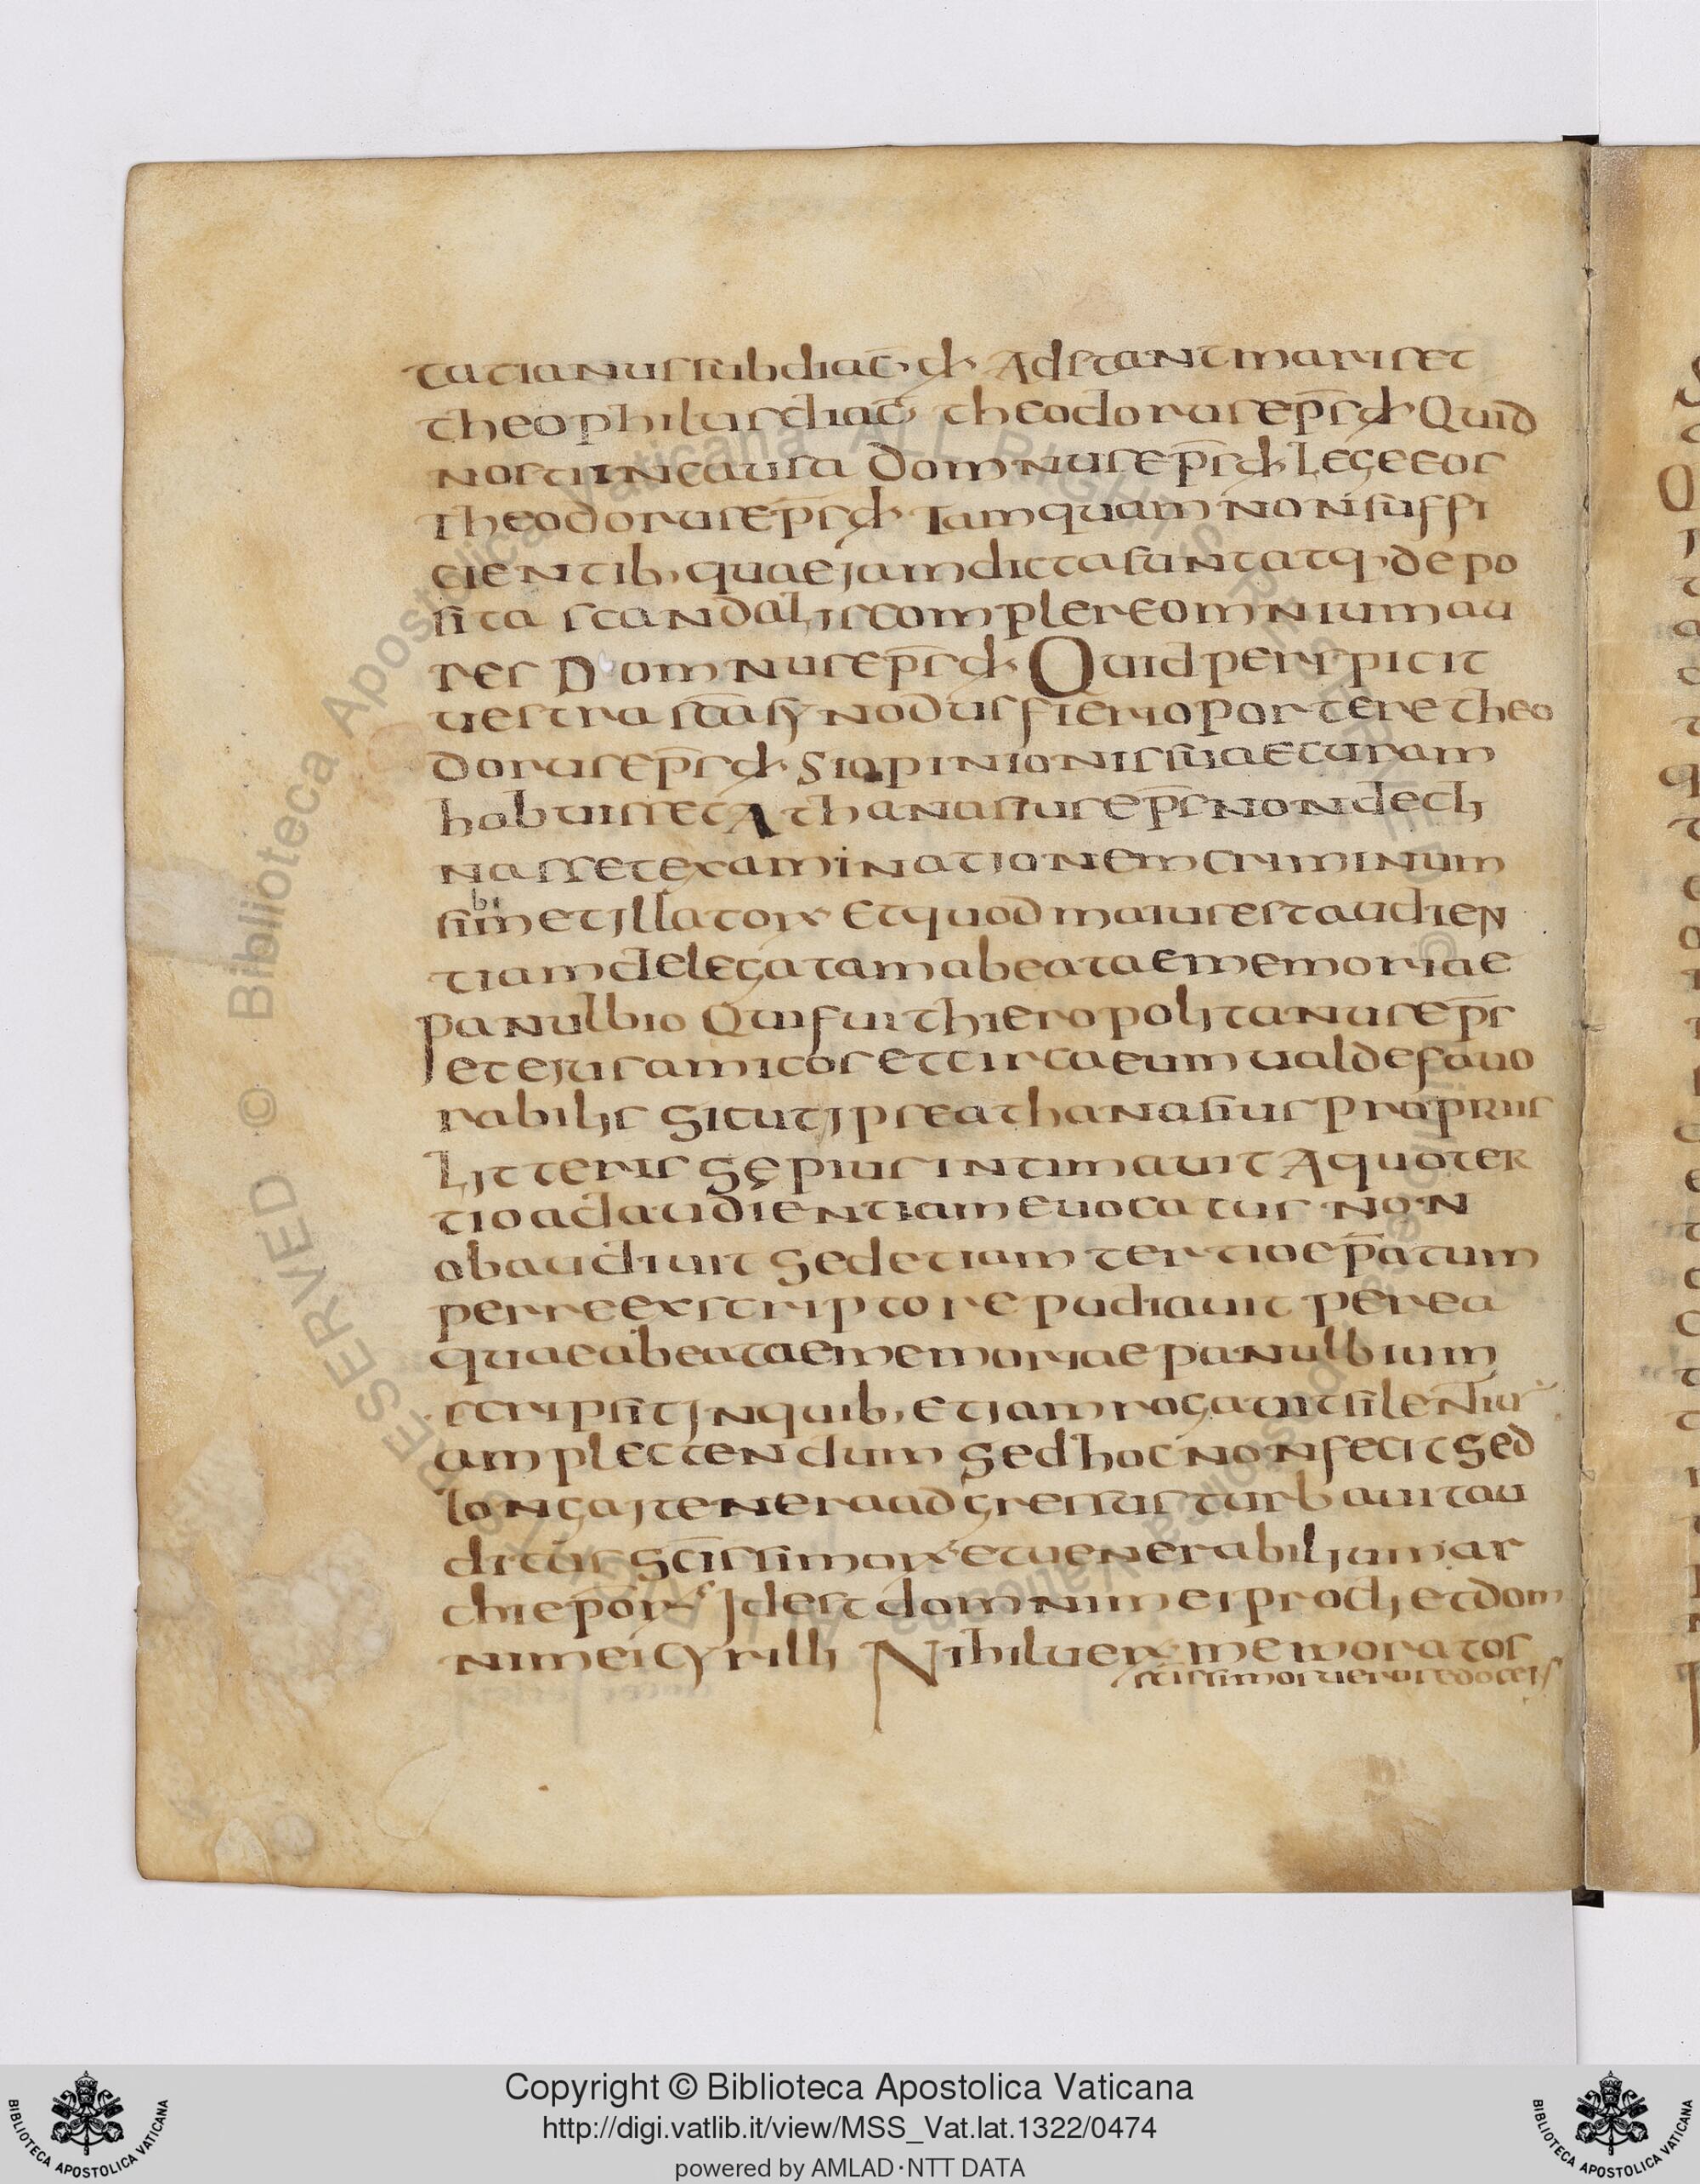 tatianus subdiac̄ dx̄ Adstant maris et
theophilus diac̄ theodorus ep̄s dx̄ Quid
nosti in causa Domnus ep̄s dx̄ Lege eos
Theodorus ep̄s dx̄ Tamquam non suffi
cientib, quae jam dicta sunt atq, depo
sita scandalis complere omnium au
res Domnus ep̄s dx̄ Quid perspicit
uestra sc̄a synodus fieri oportere theo
dorus ep̄s dx̄ Si opinionis suae curam
habuisset Athanasius ep̄s non decli
nasset examinationem criminum
sibimet illatorx Et quod maius est audien
tiam delegatam a beatae memoriae
panulbio Qui fuit hieropolitanus ep̄s
et ejus amicos et circa eum ualde fauo
rabilis Sicut ipse athanasius propriis
Litteris Sępius intimauit A quo ter
tio ad audientiam euocatus non
obaudiuit Sed etiam tertio ep̄atum
per reexscripto repudiauit per ea
quae ab eatae memoriae panulbium
scripsit In quib, etiam rogauit silentiū
amplectendum Sed hoc non fecit Sed
longa iste nera adgressus turbauit au
ditus Sc̄issimorx et uenerabilium ar
chiep̄orx Id est domni mei procli et dom
ni mei Cyrilli Nihil uerx memoratos
sc̄issimos ueros edocens
Copyright © Biblioteca Apostolica Vaticana
http://digi.vatlib.it/view/MSS_Vat.lat.1322/0474
powered by AMLAD·NTT DATA